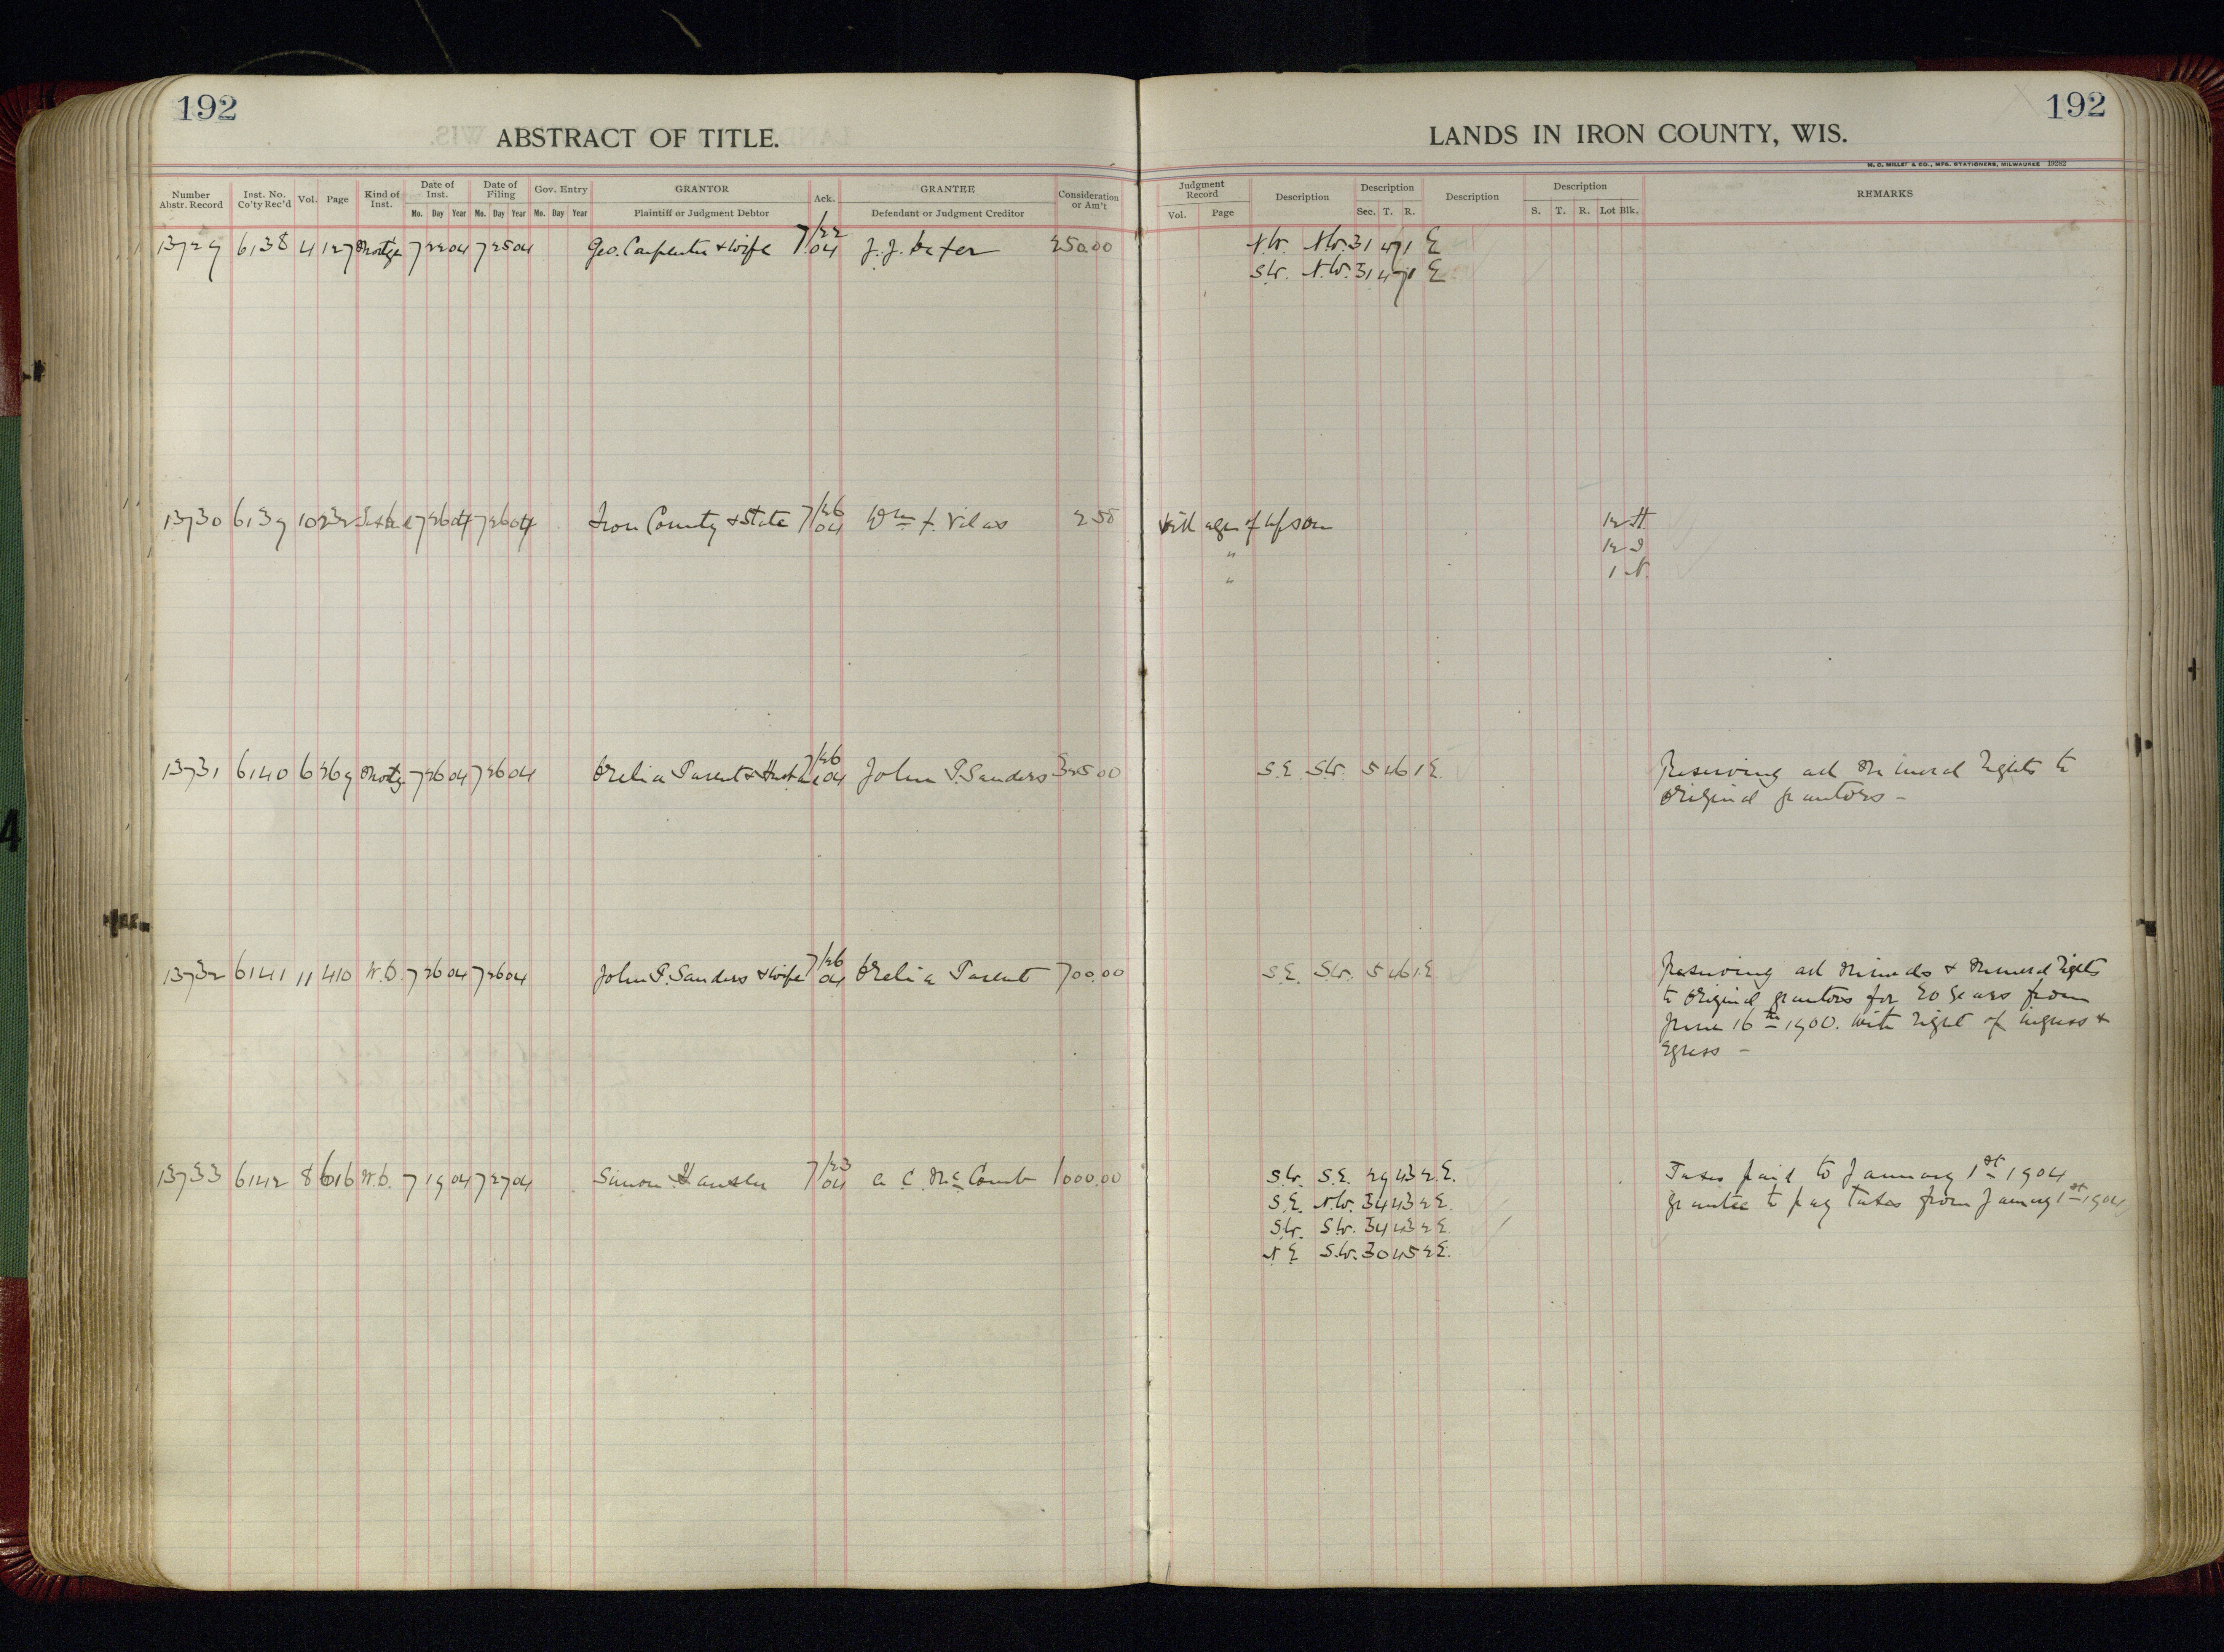 192
192
ABSTRACT OF TITLE.
LANDS IN IRON COUNTY, WIS.
H. C. MILLER & CO., MFG. STATIONERS, MILWAUKEE 19282
Number Abstr. Record Inst. No. Co'ty Rec'd Vol. Page Kind of Inst. Date of Inst. Date of Filing Gov. Entry GRANTOR Ack. GRANTEE Consideration or Am't Judgment Record Description Description Description Description REMARKS
Mo. Day Year Mo. Day Year Mo. Day Year Plaintiff or Judgment Debtor Defendant or Judgment Creditor Vol. Page Sec. T. R. S. T. R. Lot Blk.
13729 6138 4 127 Mortge 7 22 04 7 25 04 Geo. Carpenter & wife 7/22 04 J. J. 250.00 N.W. N.W. 31 47 1 E
S.W. N.W. 31 47 1 E
13730 6139 10 232 7 26 04 7 26 04 Iron County & State 7/26 04 Wm F. Vilas 2 50 Village of Upson 12 H
" 12 I
" 1 N.
13731 6140 6 269 Mortg 7 26 04 7 26 04 Orelia Parent & Husb 7/26 04 John P. Sanders 325 00 S.E. S.W. 5 46 1 E. Reserving all Mineral Rights to
Original grantors –
13732 6141 11 410 W.D. 7 26 04 7 26 04 John P. Sanders & wife 7/26 04 Orelia Parent 700.00 S.E. S.W. 5 46 1 E Reserving all Minerals & Mineral Rights
to Original grantors for 20 years from
June 16th 1900. With right of ingress &
Egress –
13733 6142 8 616 W.D. 7 19 04 7 27 04 Simon 7/23 04 A. C. McComb 1000.00 S.W. S.E. 29 43 2 E. Taxes paid to January 1st 1904
S.E. N.W. 34 43 2 E. Grantee to pay taxes from January 1st 1904
S.W. S.W. 34 43 2 E
N E S.W. 30 45 2 E.